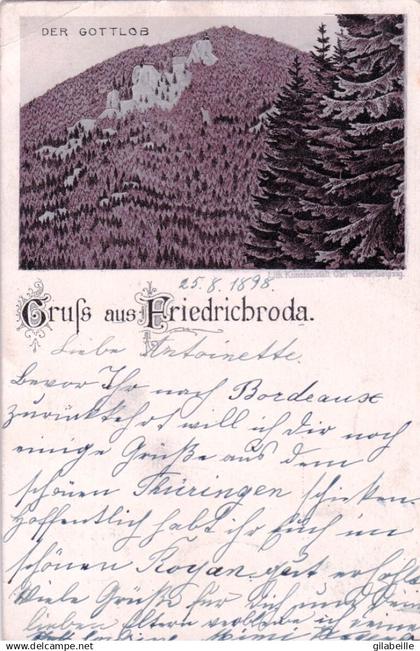 DER GOTTLOB
Lith. Kunstanstalt Carl Garte, Leipzig.
25.8.1898.
Gruß aus Friedrichroda.
Liebe Antoinette.
Bevor Ihr nach Bordeaux
zurückkehrt will ich dir noch
einige Grüße aus dem
schönen Thüringen schicken.
Hoffentlich habt ihr Euch im
schönen Royan gut erholt
Viele Grüße für Dich und
lieben Eltern
© delcampe.net
gilabeille